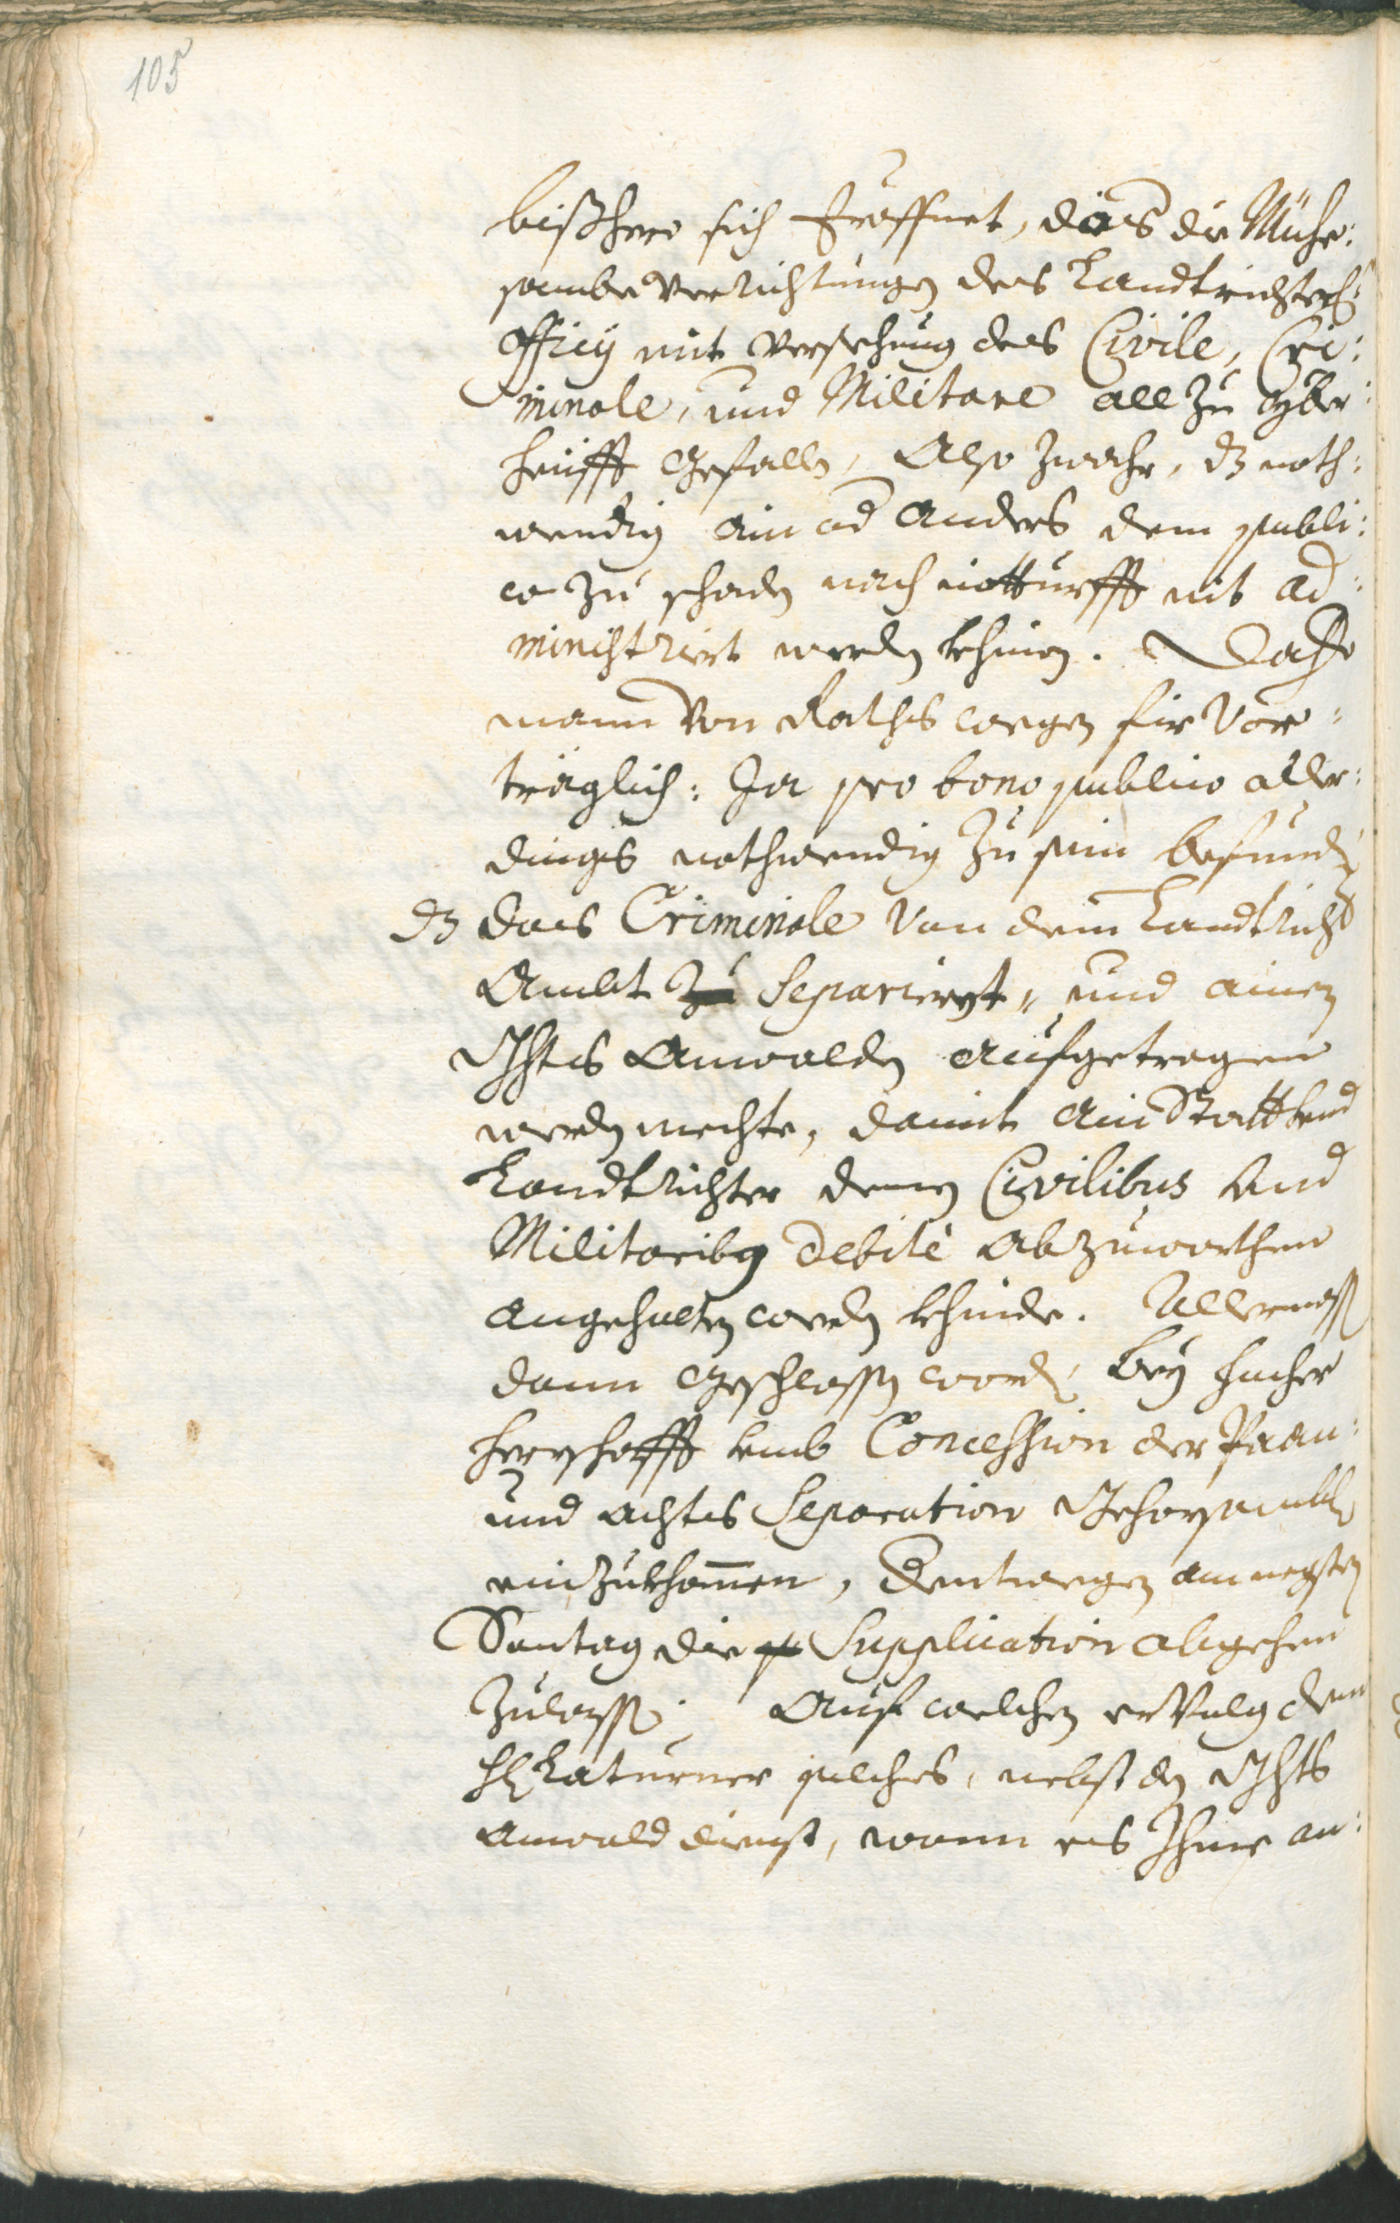 105
bißhero sich Eröffnet, das die Mühe:
sambe verrichtungen des Landtrichters
Officij mit versehung des Civile, Cri:
minale, und Militare all zu yber:
heüfft gefallen, Also zwahr, dz noth:
wendig ain od anders dem publi:
co zu schaden nach notturfft nit ad:
ministriert werden khinen. Dahero
mann von Raths wegen fir vor:
träglich: Ja pro bono publico aller:
dings nothwendig zu sein befunden
dz das Criminale von dem Landtricht
Ambt zu separiert, und ainen
Achts Anwalden aufgetragen
werden mechte, damit ain Statt und
Landtrichter denen Civilibus und
Militaribus debite abzuwarthen
angehalten werden khinde. Allermass
dann geschlossen worden bey hocher
herrschafft umb Concession der Paan:
und achts Separation gehorsambl
einzukhommen, Dentwegen am negsten
Sontag die Supplication abgehen
zulassen. Auf welchen ervolg dem
H Laturner solches, nebst den Achts
anwald dienst, wann es Ihme an: